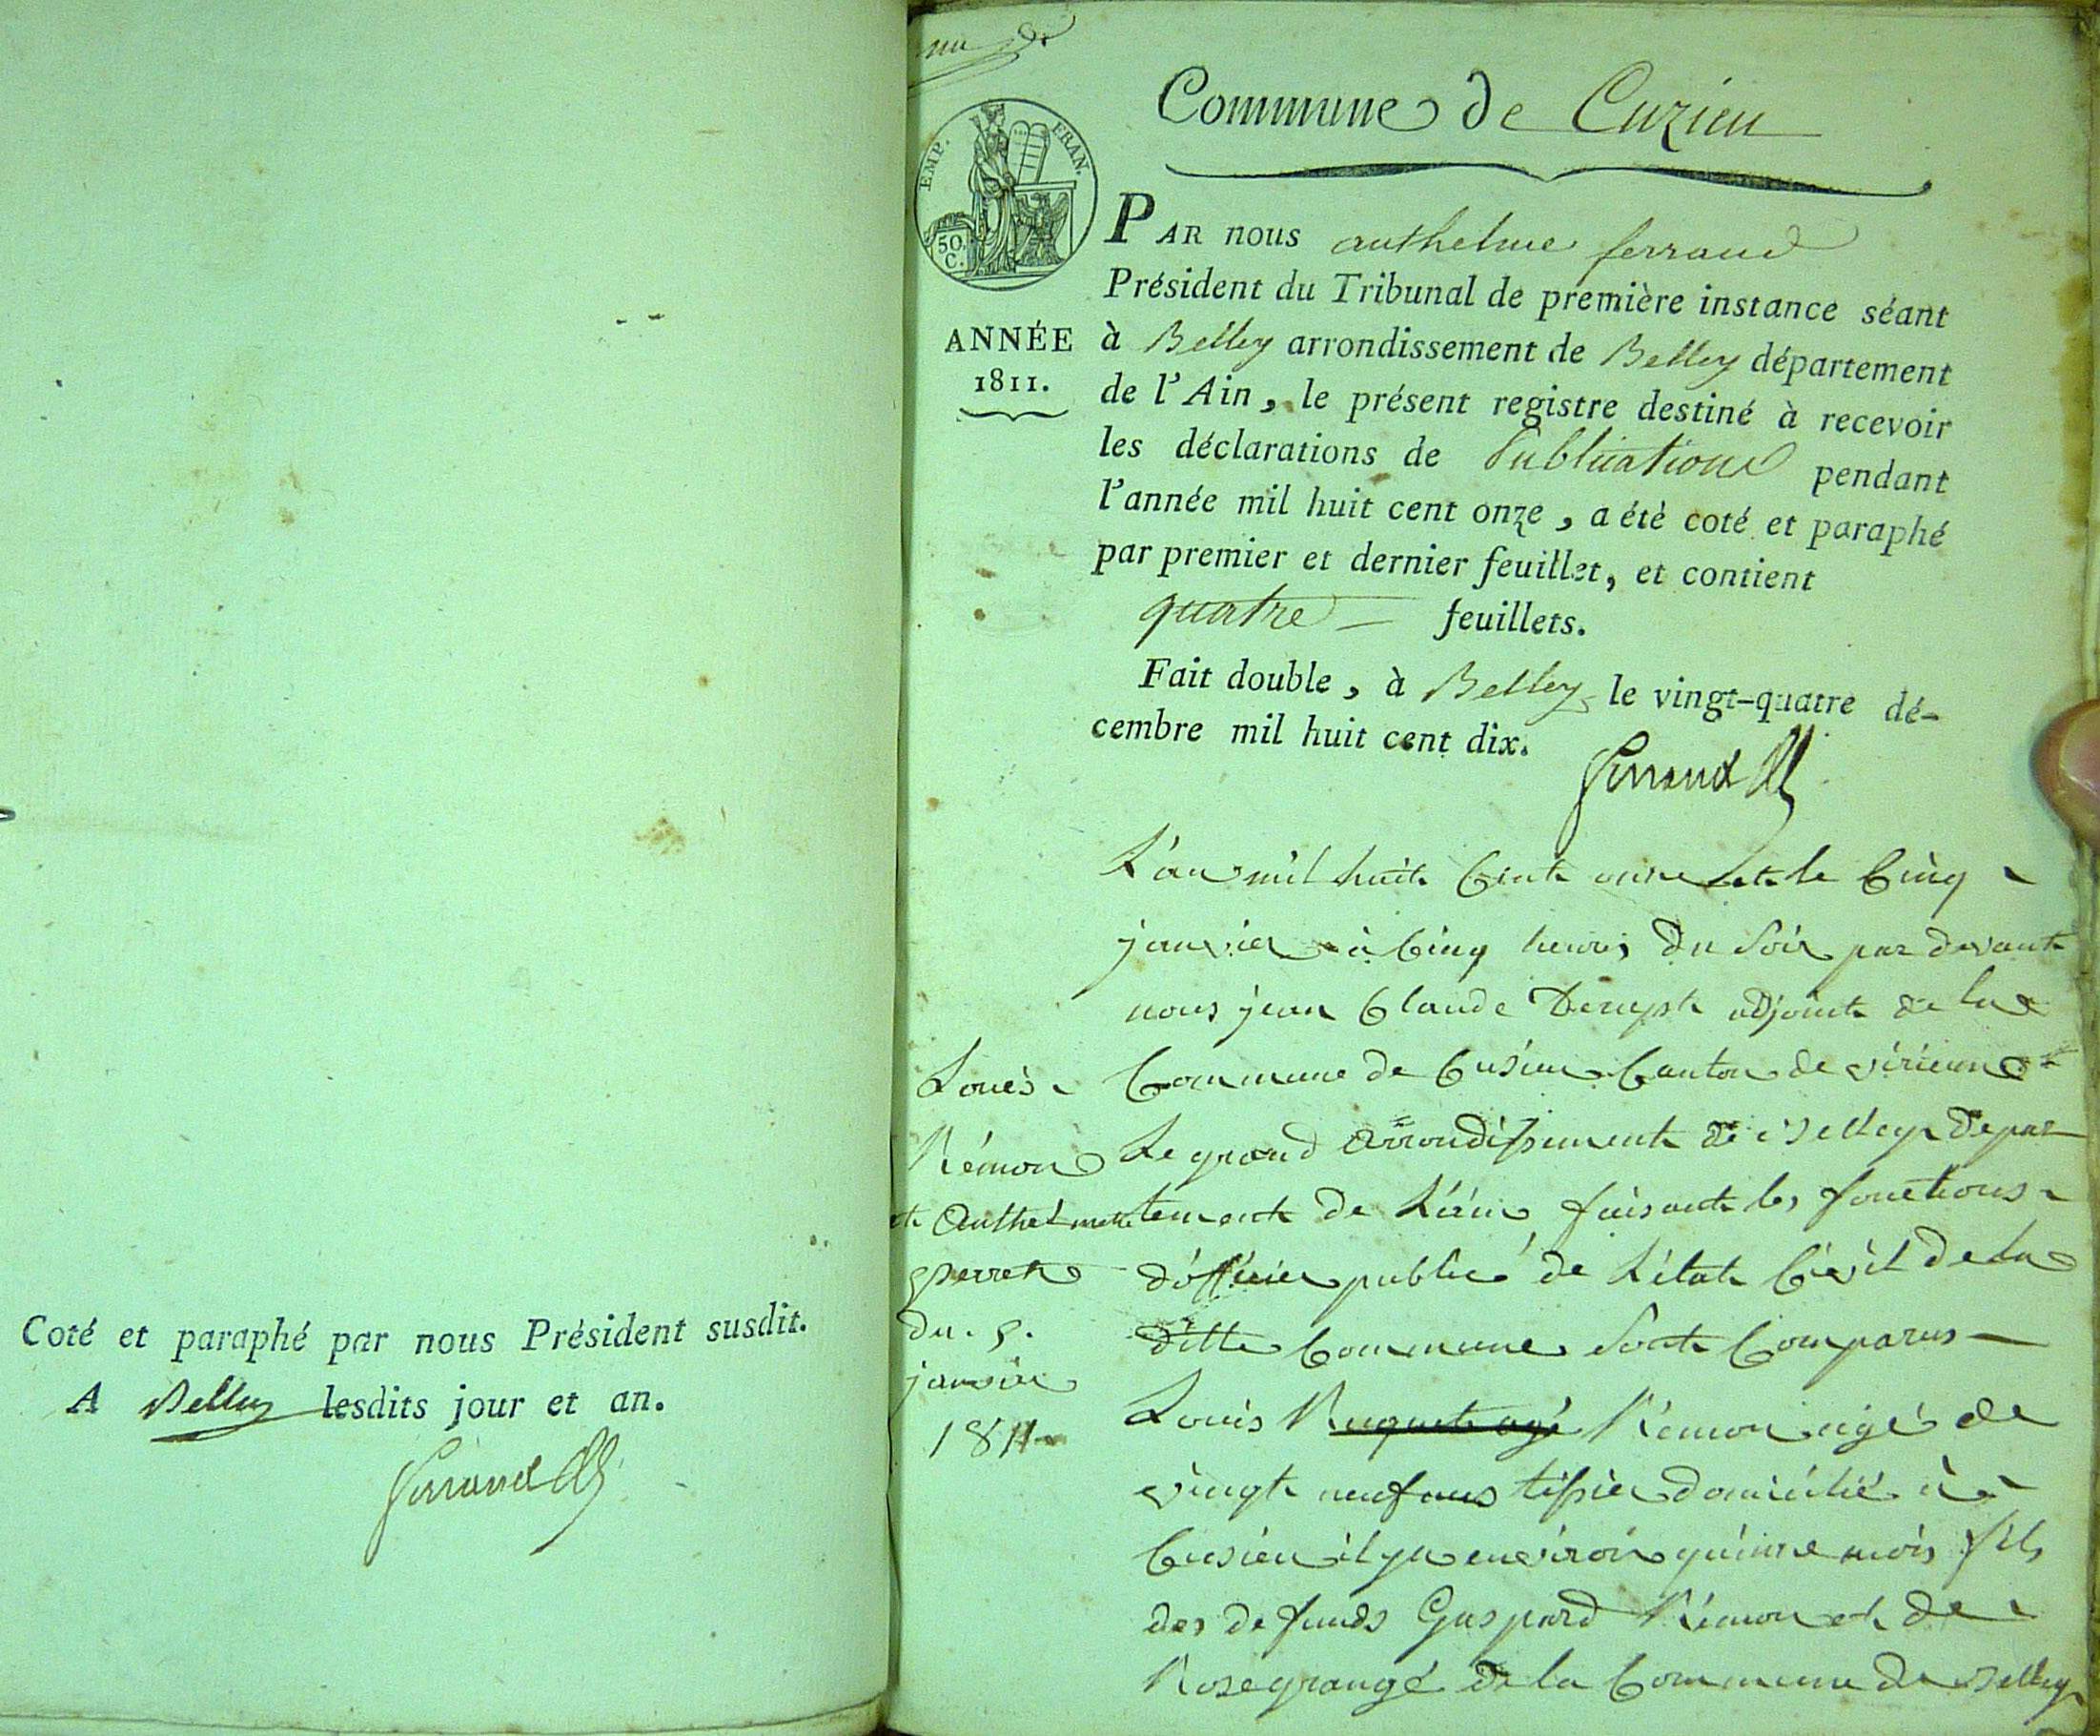 Coté et paraphé par nous Président susdit.
A Belley lesdits jour et an.
Ferrand
Commune de Cuzieu
EMP. FRAN.
50 C.
ANNÉE
1811.
PAR nous anthelme ferrand
Président du Tribunal de première instance séant
à Belley arrondissement de Belley département
de l'Ain, le présent registre destiné à recevoir
les déclarations de Publications pendant
l'année mil huit cent onze, a été coté et paraphé
par premier et dernier feuillet, et contient
quatre feuillets.
Fait double, à Belley le vingt-quatre dé-
cembre mil huit cent dix.
Ferrand
Louis
Rémon
et Anthelmette
perret
du. 5.
janvier
1811
L'an mil huit Cent onze et le Cinq
janvier à Cinq heures du Soir par devant
nous jean Claude adjoint de la
Commune de Cusieu Canton de virieu
Le grand arrondissement de Belley depar
tement de L'ain faisant les fonctions
d'officier public de L'état Civil de la
ditte Commune Sont Comparus
Louis Ruquet agé Rémon agé de
vingt neuf ans tissier domicilié à
Cusieu il y a environ quinze mois fils
des defunds Gaspard Rémon et de
Rose grangé de la Commune de Belley